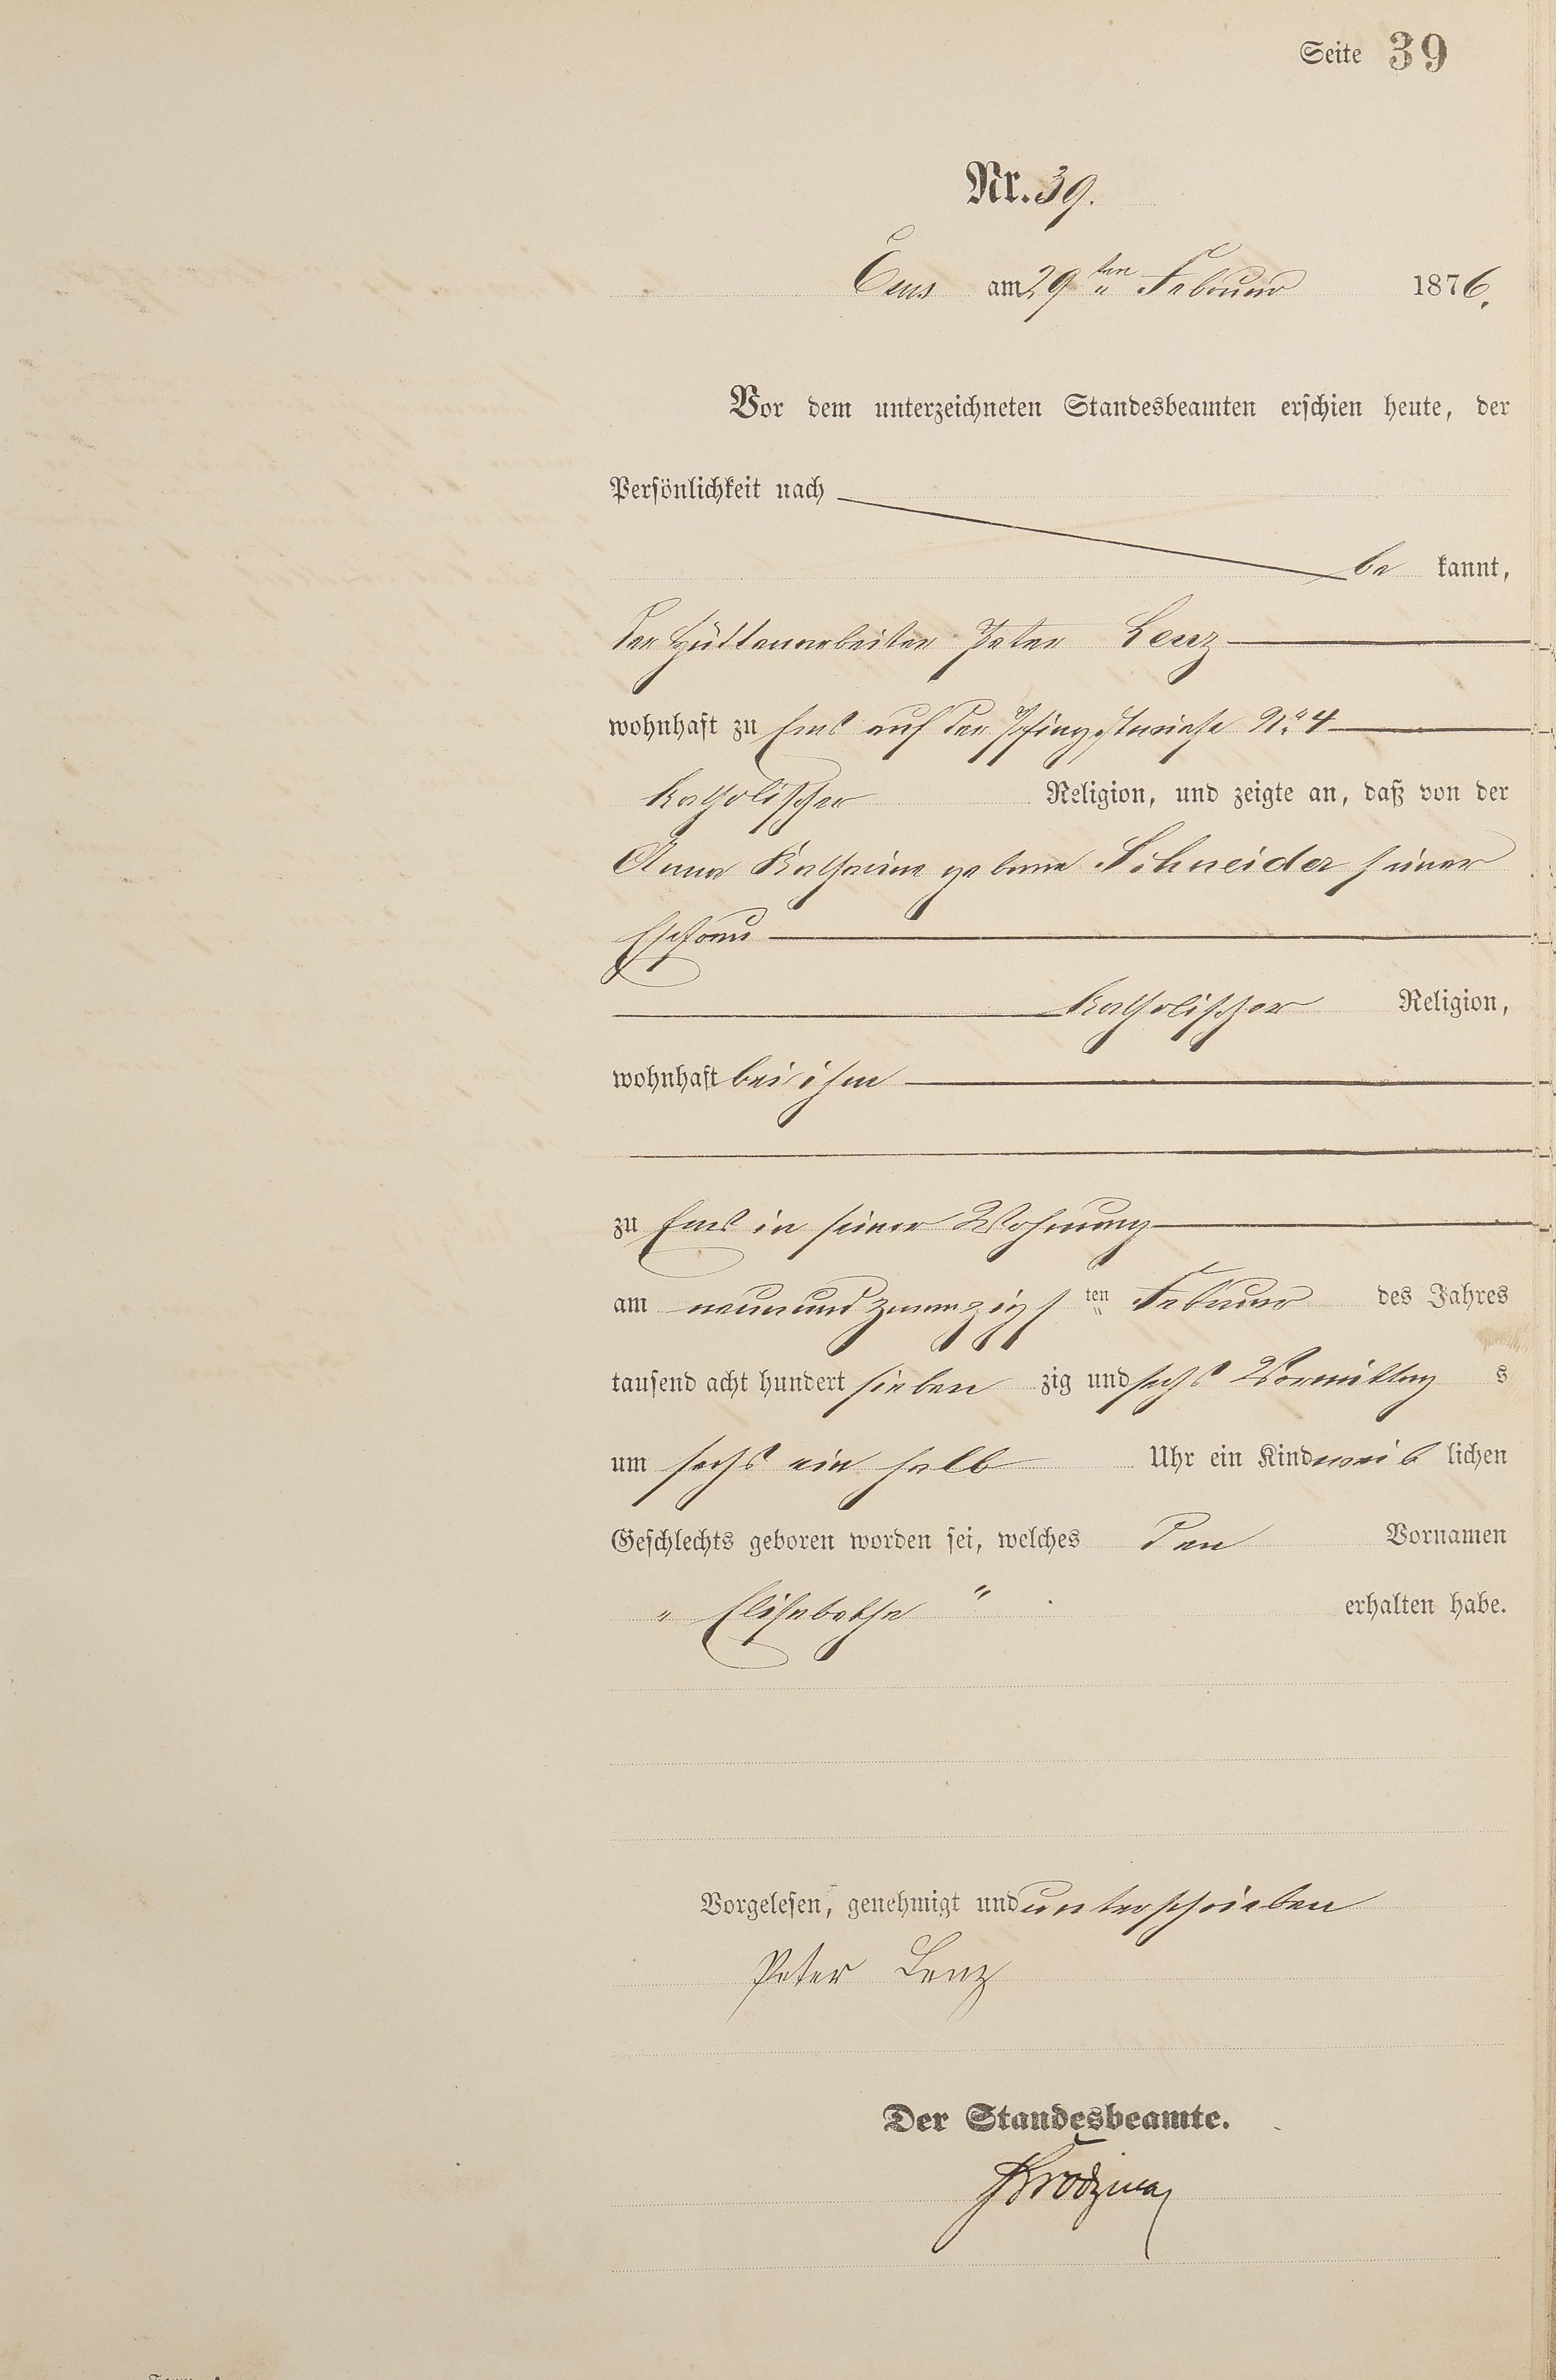 Seite 39
Nr. 39.
Ems am 29ten Februar 1876.
Vor dem unterzeichneten Standesbeamten erschien heute, der
Persönlichkeit nach
be kannt,
der Hüttenarbeiter Peter Lenz
wohnhaft zu Ems auf der Pfingstwiese No. 4
katholischer Religion, und zeigte an, daß von der
Anna Katharina geborne Schneider seiner
Ehefrau
katholischer Religion,
wohnhaft bei ihm
zu Ems in seiner Wohnung
am neunundzwanzigs ten Februar des Jahres
tausend acht hundert sieben zig und sechs Vormittag s
um sechs ein halb Uhr ein Kind weib lichen
Geschlechts geboren worden sei, welches den Vornamen
„ Elisabethe " erhalten habe.
Vorgelesen, genehmigt und unterschrieben
Peter Lenz
Der Standesbeamte.